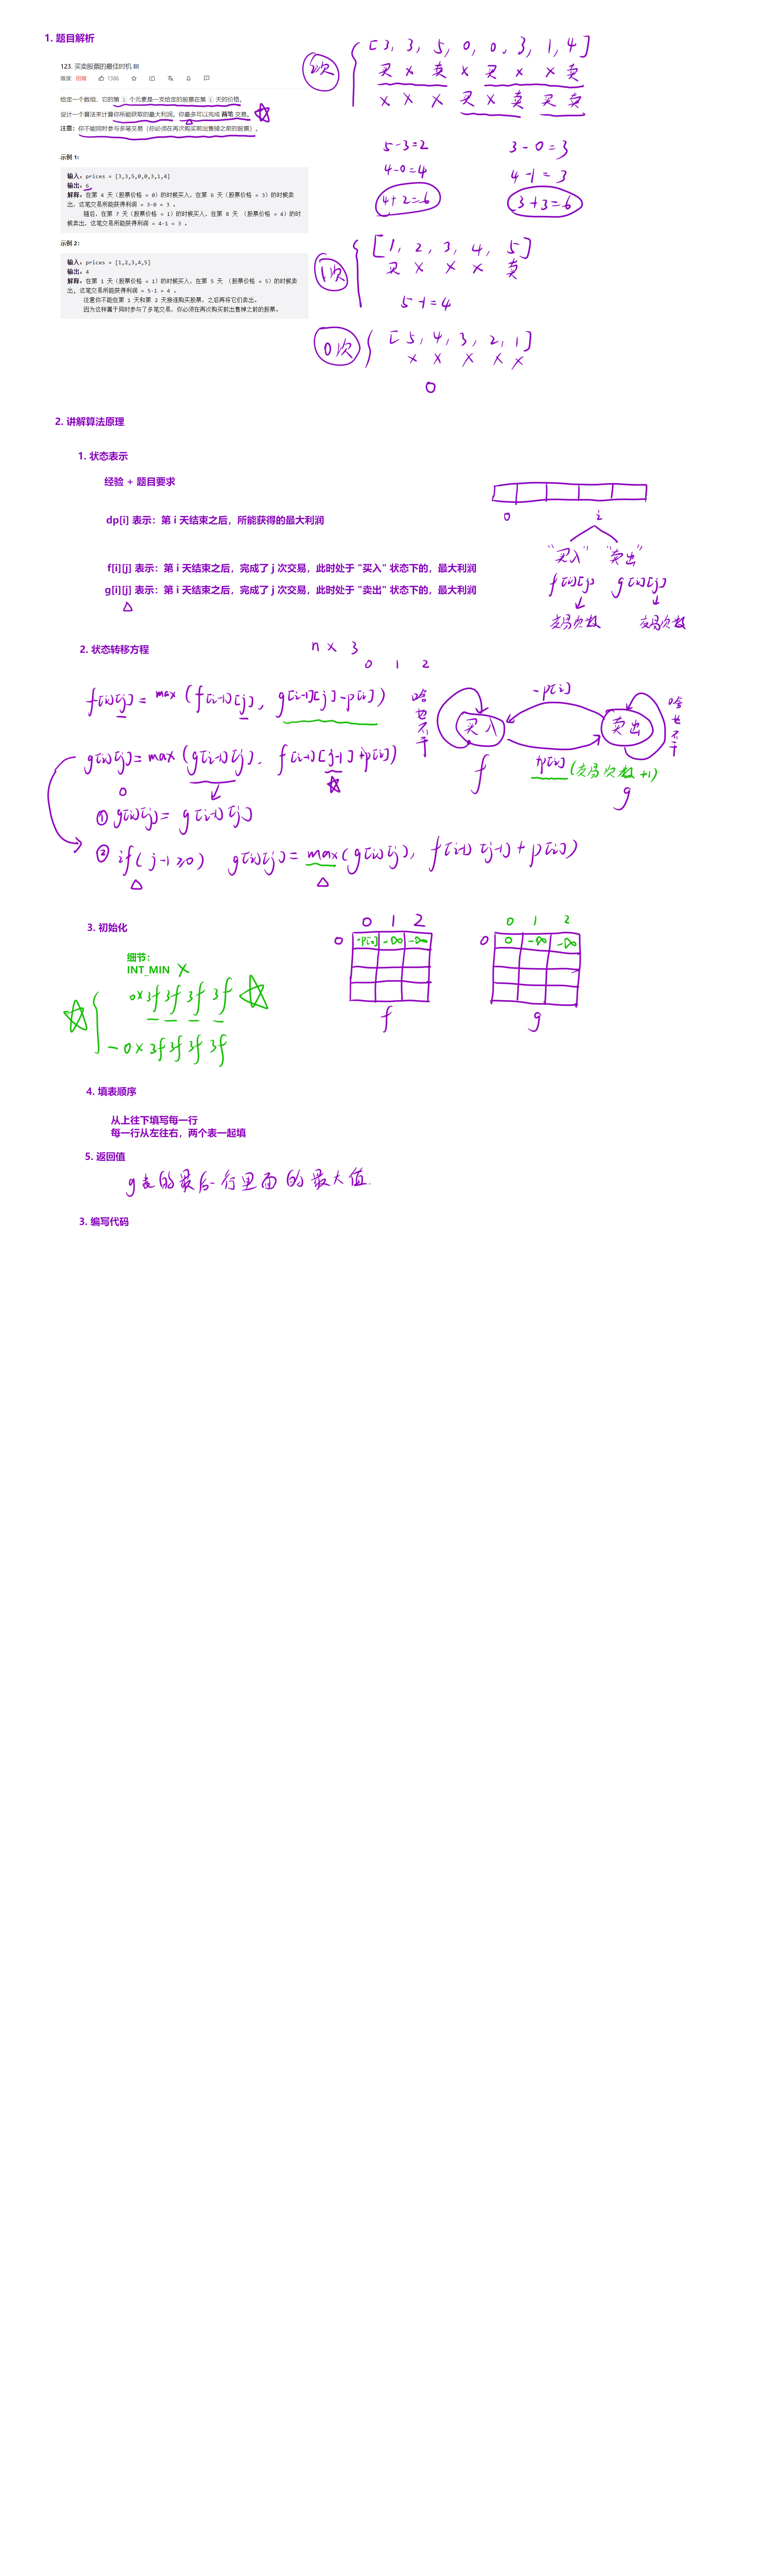 1. 题目解析
123. 买卖股票的最佳时机 III
难度 困难 1386
给定一个数组，它的第 i 个元素是一支给定的股票在第 i 天的价格。
设计一个算法来计算你所能获取的最大利润。你最多可以完成 两笔 交易。
注意：你不能同时参与多笔交易（你必须在再次购买前出售掉之前的股票）。
示例 1:
输入：prices = [3,3,5,0,0,3,1,4]
输出：6
解释：在第 4 天（股票价格 = 0）的时候买入，在第 6 天（股票价格 = 3）的时候卖
出，这笔交易所能获得利润 = 3-0 = 3 。
随后，在第 7 天（股票价格 = 1）的时候买入，在第 8 天 （股票价格 = 4）的时
候卖出，这笔交易所能获得利润 = 4-1 = 3 。
示例 2：
输入：prices = [1,2,3,4,5]
输出：4
解释：在第 1 天（股票价格 = 1）的时候买入，在第 5 天 （股票价格 = 5）的时候卖
出, 这笔交易所能获得利润 = 5-1 = 4 。
注意你不能在第 1 天和第 2 天接连购买股票，之后再将它们卖出。
因为这样属于同时参与了多笔交易，你必须在再次购买前出售掉之前的股票。
2次
[3, 3, 5, 0, 0, 3, 1, 4]
买 × 卖 × 买 × × 卖
× × × 买 × 卖 买 卖
5-3=2 3-0=3
4-0=4 4-1=3
4+2=6 3+3=6
1次
[1, 2, 3, 4, 5]
买 × × × 卖
5-1=4
0次
[5, 4, 3, 2, 1]
× × × × ×
0
2. 讲解算法原理
1. 状态表示
经验 + 题目要求
dp[i] 表示：第 i 天结束之后，所能获得的最大利润
f[i][j] 表示：第 i 天结束之后，完成了 j 次交易，此时处于 "买入" 状态下的，最大利润
g[i][j] 表示：第 i 天结束之后，完成了 j 次交易，此时处于 "卖出" 状态下的，最大利润
0 i
"买入" "卖出"
f[i][j] g[i][j]
交易次数 交易次数
2. 状态转移方程
n × 3
0 1 2
f[i][j] = max (f[i-1][j], g[i-1][j]-p[i])
g[i][j] = max (g[i-1][j], f[i-1][j-1]+p[i])
0
① g[i][j] = g[i-1][j]
② if(j-1≥0) g[i][j] = max(g[i][j], f[i-1][j-1]+p[i])
啥也不干
买入
-p[i]
卖出
啥也不干
f
+p[i] (交易次数+1)
g
3. 初始化
细节：
INT_MIN ×
0×3f3f3f3f
-0×3f3f3f3f
0 1 2
0 -p[0] -∞ -∞
f
0 1 2
0 0 -∞ -∞
g
4. 填表顺序
从上往下填写每一行
每一行从左往右，两个表一起填
5. 返回值
g表的最后一行里面的最大值.
3. 编写代码